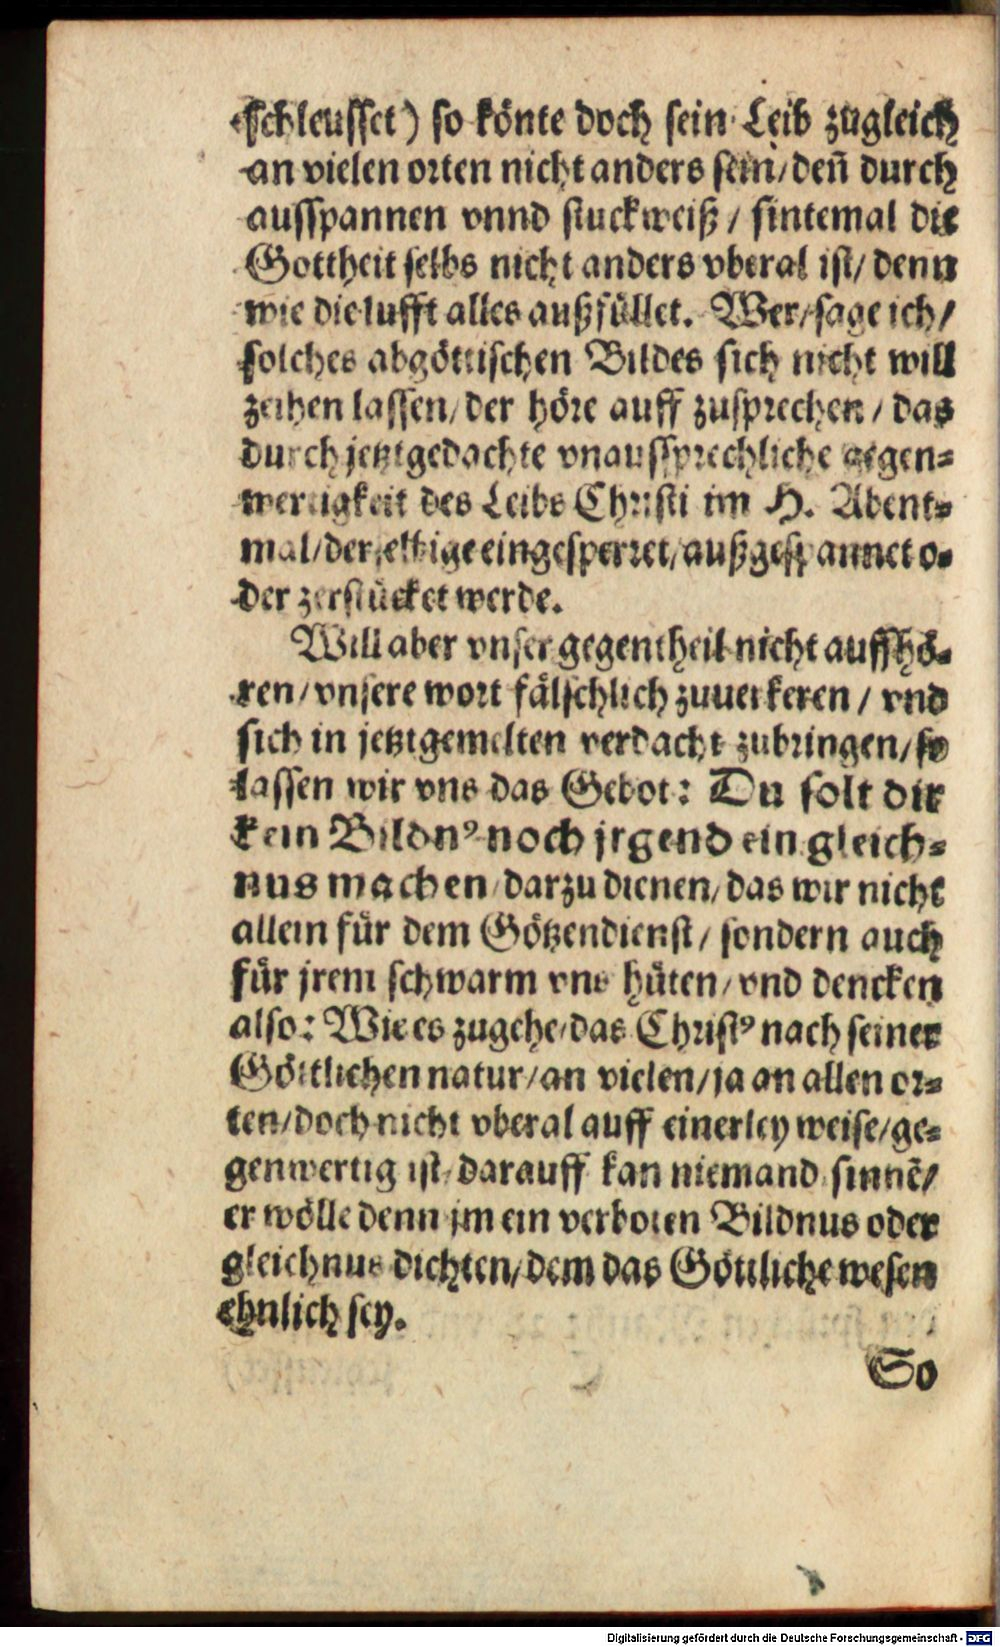 schleusset) so könte doch sein Leib zugleich
an vielen orten nicht anders sein/ deñ durch
ausspannen vnnd stuckweiß / sintemal die
Gottheit selbs nicht anders vberal ist/ denn
wie die lufft alles außfüllet. Wer/ sage ich/
solches abgöttischen Bildes sich nicht will
zeihen lassen/ der höre auff zusprechen / das
durch jetztgedachte vnaussprechliche gegen=
wertigkeit des Leibs Christi im H. Abent=
mal/ derselbige eingesperret/ außgespannet o=
der zerstücket werde.
Will aber vnser gegentheil nicht auffhö=
ren/ vnsere wort fälschlich zuuerkeren / vnd
sich in jetztgemelten verdacht zubringen/ so
lassen wir vns das Gebot: Du solt dir
kein Bildnꝰ noch jrgend ein gleich=
nus machen/ darzu dienen/ das wir nicht
allein für dem Götzendienst/ sondern auch
für jrem schwarm vns hüten/ vnd dencken
also: Wie es zugehe/ das Christꝰ nach seiner
Göttlichen natur/ an vielen/ ja an allen or=
ten/ doch nicht vberal auff einerley weise/ ge=
genwertig ist/ darauff kan niemand sinnẽ/
er wölle denn jm ein verboten Bildnus oder
gleichnus dichten/ dem das Göttliche wesen
ehnlich sey.
So
Digitalisierung gefördert durch die Deutsche Forschungsgemeinschaft - DFG